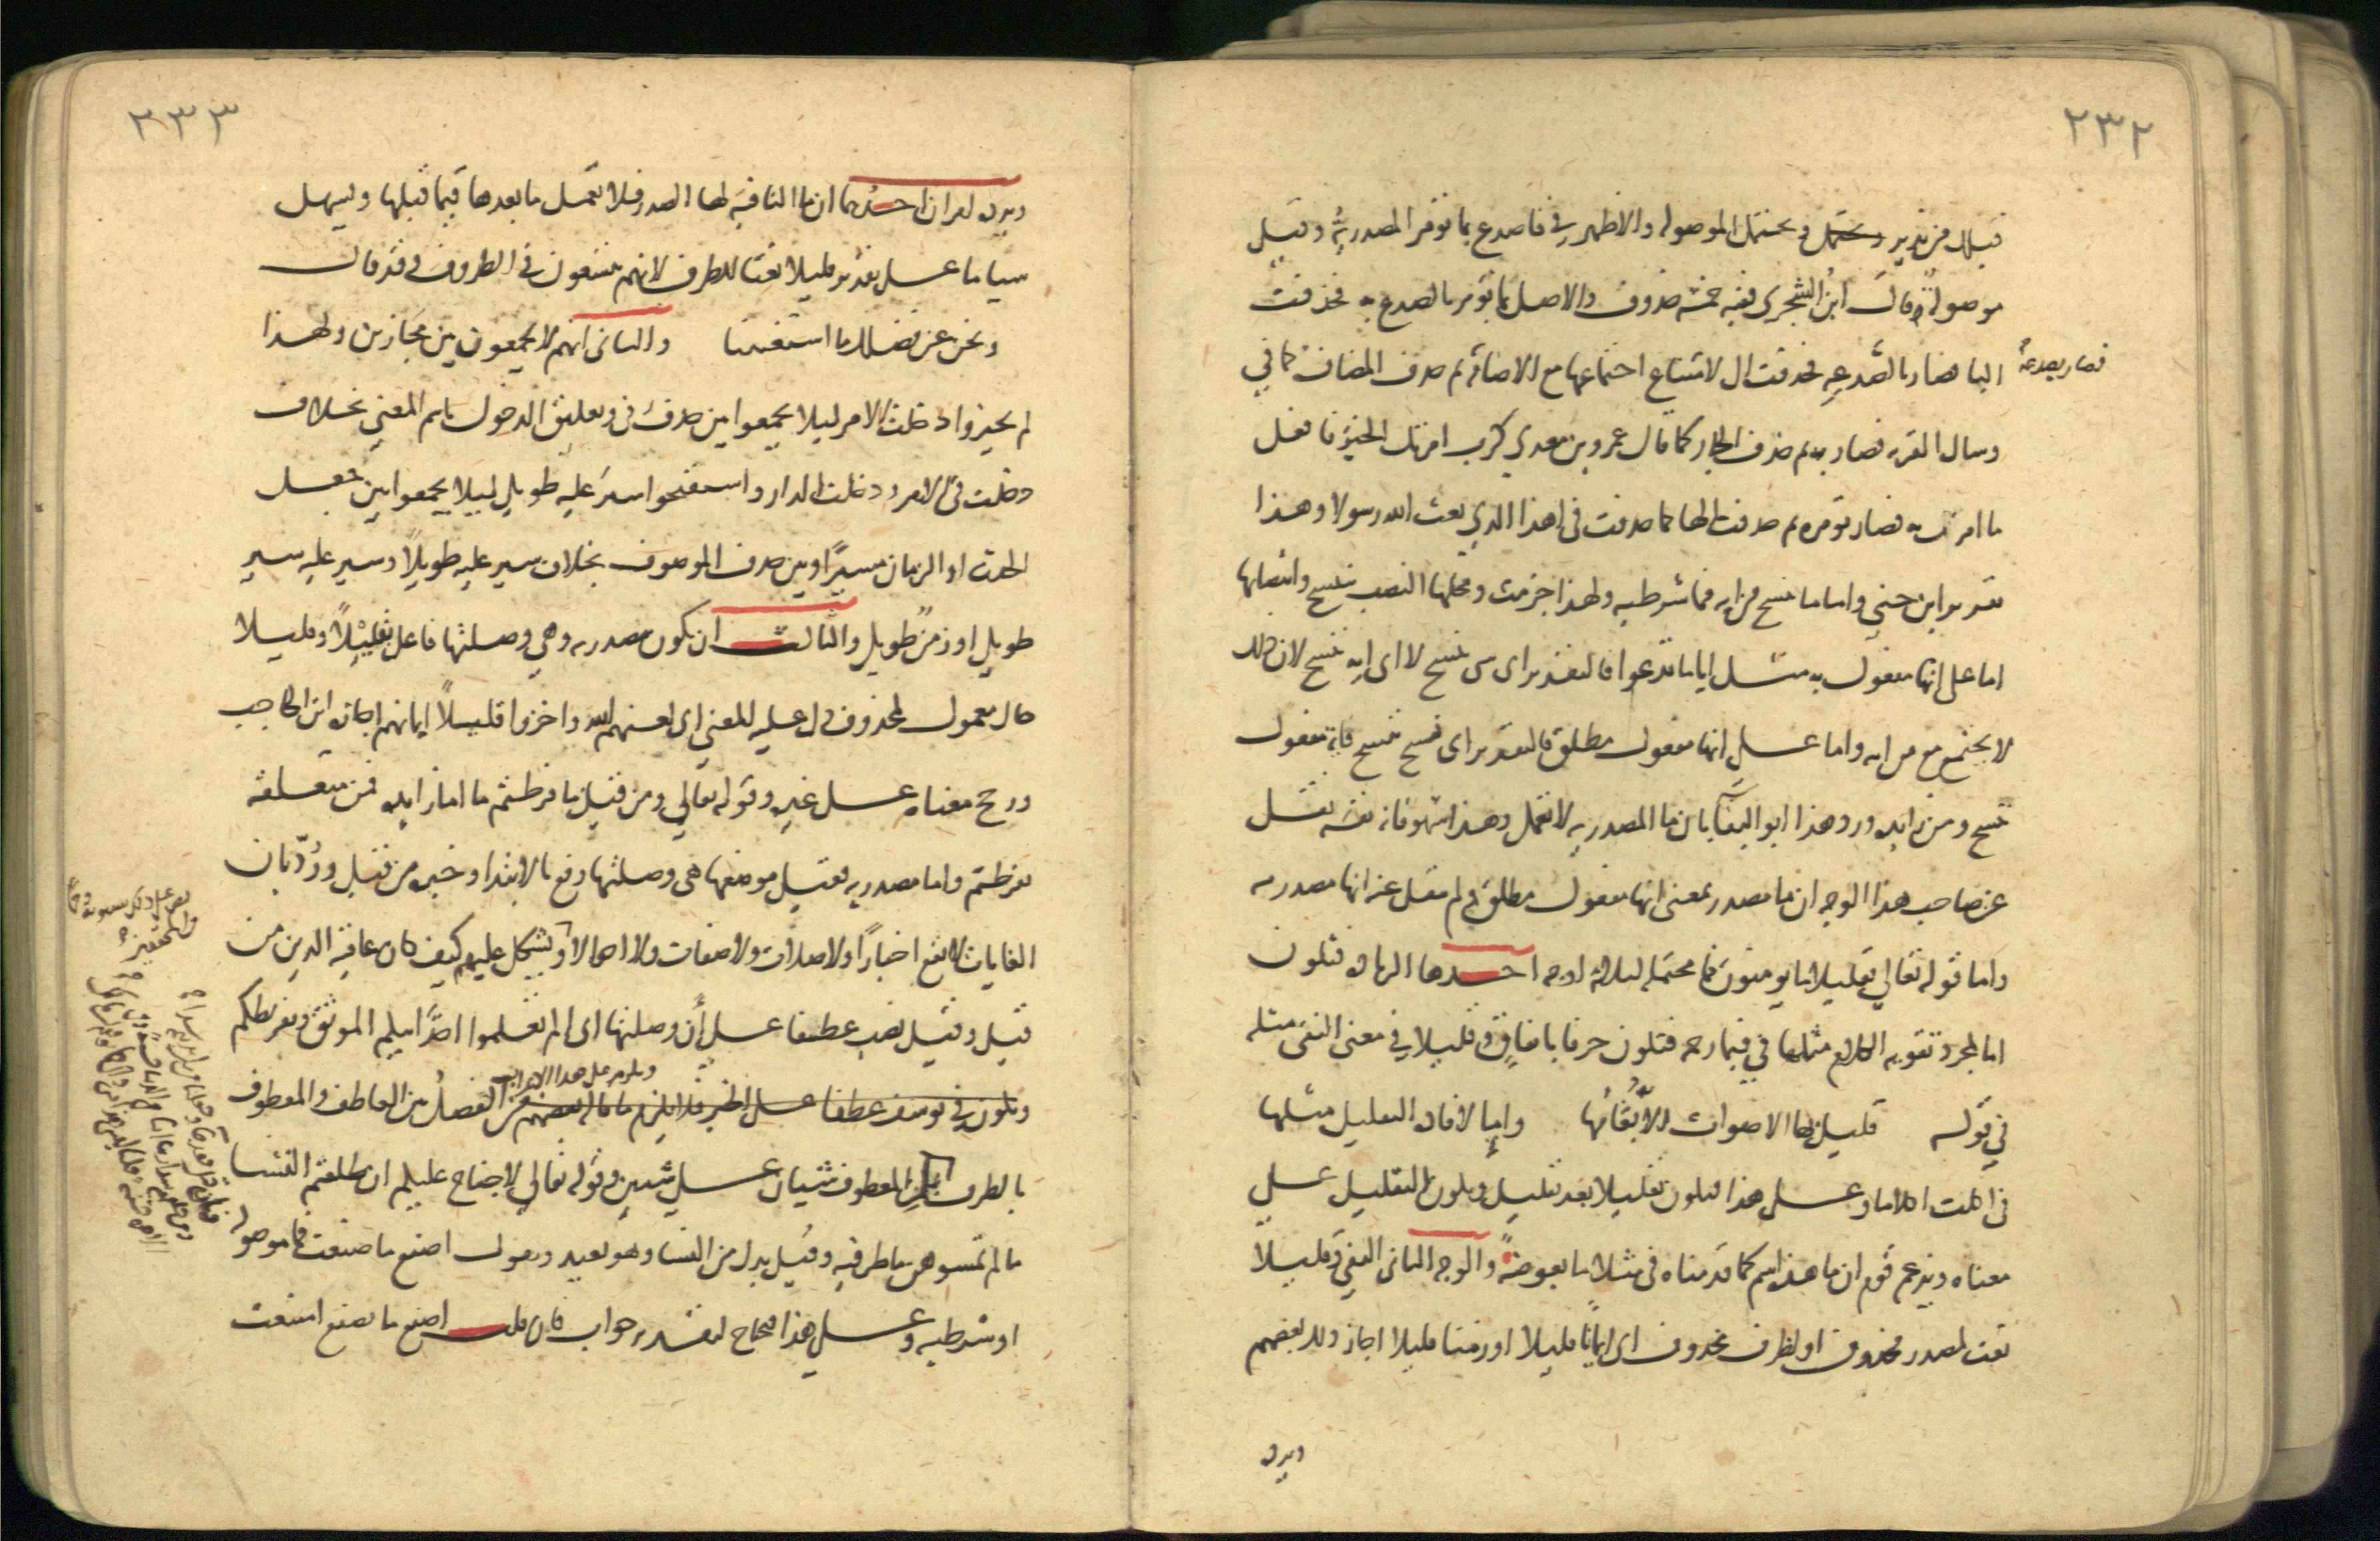 ٢٣٢
قبلك من نذير ويحتمل الموصولة والاظهر في فاصدع بما تؤمر المصدرية وقيل
موصولة وقال ابن الشجري ففيه خمسة حذوف والاصل بما تؤمر بالصدع به فحذفت
البا فصار بالصدعه فحذفت ال لامتناع اجتماعها مع الاضافة ثم حذف المضاف كما في
فصار بصدعه
وسال القريه فصار به ثم حذف الجار كما قال عمرو بن معدي كرب امرتك الخير فافعل
ما امرت به فصار تؤمره ثم حذفت الها كما حذفت في اهذا الذي بعث الله رسولا وهذا
تقدير ابن جني واما ما ننسخ من ايه فما شرطيه ولهذا جزمت ومحلها النصب بننسخ وانتصابها
اما على انها مفعول به مثل ايا ما تدعوا فالتقدير اى شى ننسخ لا اى ايه ننسخ لان ذلك
لا يجتمع مع من ايه واما على انها مفعول مطلق فالتقدير اى نسخ ننسخ فايه مفعول
ننسخ ومن زايده ورد هذا ابو البقا بان ما المصدريه لا تعمل وهذا سهو فانه نفسه نقل
عن صاحب هذا الوجه ان ما مصدر بمعنى انها مفعول مطلق ولم ينقل عنه انها مصدريه
واما قوله تعالي فقليلا ما يومنون فما محتمله لثلاثه اوجه احدها الزياده فتكون
اما لمجرد تقويه الكلام مثلها في فبما رحمه فتكون حرفا باتفاق وقليلا في معنى النفى مثله
في قوله قليل بها الاصوات الا بغامها واما لافاده التقليل مثلها
في اكلت اكلا ما وعلى هذا فيكون تقليلا بعد تقليل ويكون التقليل على
معناه ويزعم قوم ان ما هذه اسم كما قدمناه في مثلا ما بعوضة والوجه الثانى النفي وقليلا
نعت لمصدر محذوف او لظرف محذوف اى ايمانا قليلا او زمنا قليلا اجاز ذلك بعضهم
ويرد
٢٣٣
ويرده امران احدهما ان ما النافيه لها الصدر فلا يعمل ما بعدها فيما قبلها ويسهل
شيا ما على تقدير قليلا نعتا للظرف لانهم يتسعون في الظروف وقد قال
ونحن عن فضلك ما استغنينا والثانى انهم لا يجمعون بين مجازين ولهذا
لم يجيزوا دخلت الامر ليلا يجمعوا بين حذف في وتعليق الدخول باسم المعني بخلاف
دخلت في الامر ودخلت الدار واستقبحوا سير عليه طويل ليلا يجمعوا بين جعل
الحدث او الزمان مسيرا وبين حذف الموصوف بخلاف سير عليه طويلا وسير عليه سير
طويل او زمن طويل والثالث ان تكون مصدريه وهي وصلتها فاعل بقليلا وقليلا
حال معمول لمحذوف دل عليه المعني اى لعنهم الله واخروا قليلا ايمانهم اجازه ابن الحاجب
ورجح معناه على غيره وقوله تعالي ومن قبل ما فرطتم ما اما زايده فمن متعلقه
بفرطتم واما مصدريه فقيل موضعها هى وصلتها رفع بالابتدا وخبره من قبل ورد بان
الغايات لا تقع اخبارا ولا صلات ولا صفات ولا احوالا ويشكل عليهم كيف كان عاقبه الذين من
قبل وقيل نصب عطفا على أن وصلتها اى الم تعلموا اخذ ابيكم الموثق وتفريطكم
ويلزم على هذا الاعراب
وتكون في يوسف عطفا على الخبر فلا يلزم ما قاله بعضهم من الفصل بين العاطف والمعطوف
بالظرف لان المعطوف شيان على شيين وقوله تعالي لا جناح عليكم ان طلقتم النسا
ما لم تمسوهن ما ظرفيه وقيل بدل من النسا وهو بعيد وتقول اصنع ما صنعت فما موصوله
او شرطيه وعلى هذا فتحتاج لتقدير جواب فان قلت اصنع ما تصنع امتنعت